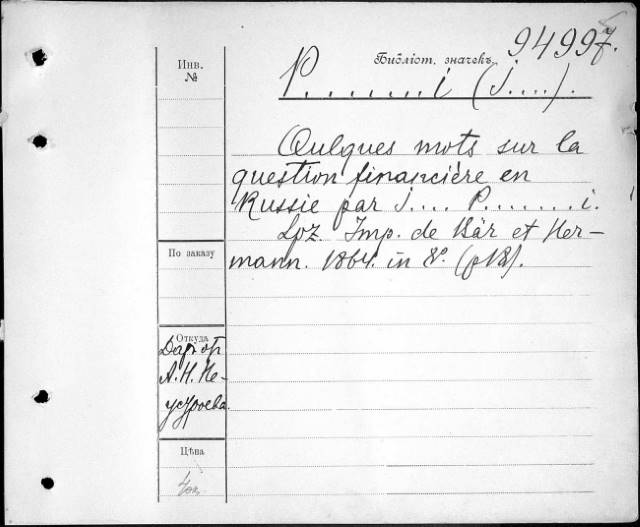 Библіот. значекъ 94997.
Инв.
№
P.......i (J....).
Quelques mots sur la
question financière en
Russie par J.... P.......i.
Lpz. Imp. de Bär et Her-
mann. 1864. in 8°.
По заказу
Откуда
Дар от
А.Н. Не-
устроева.
Цѣна